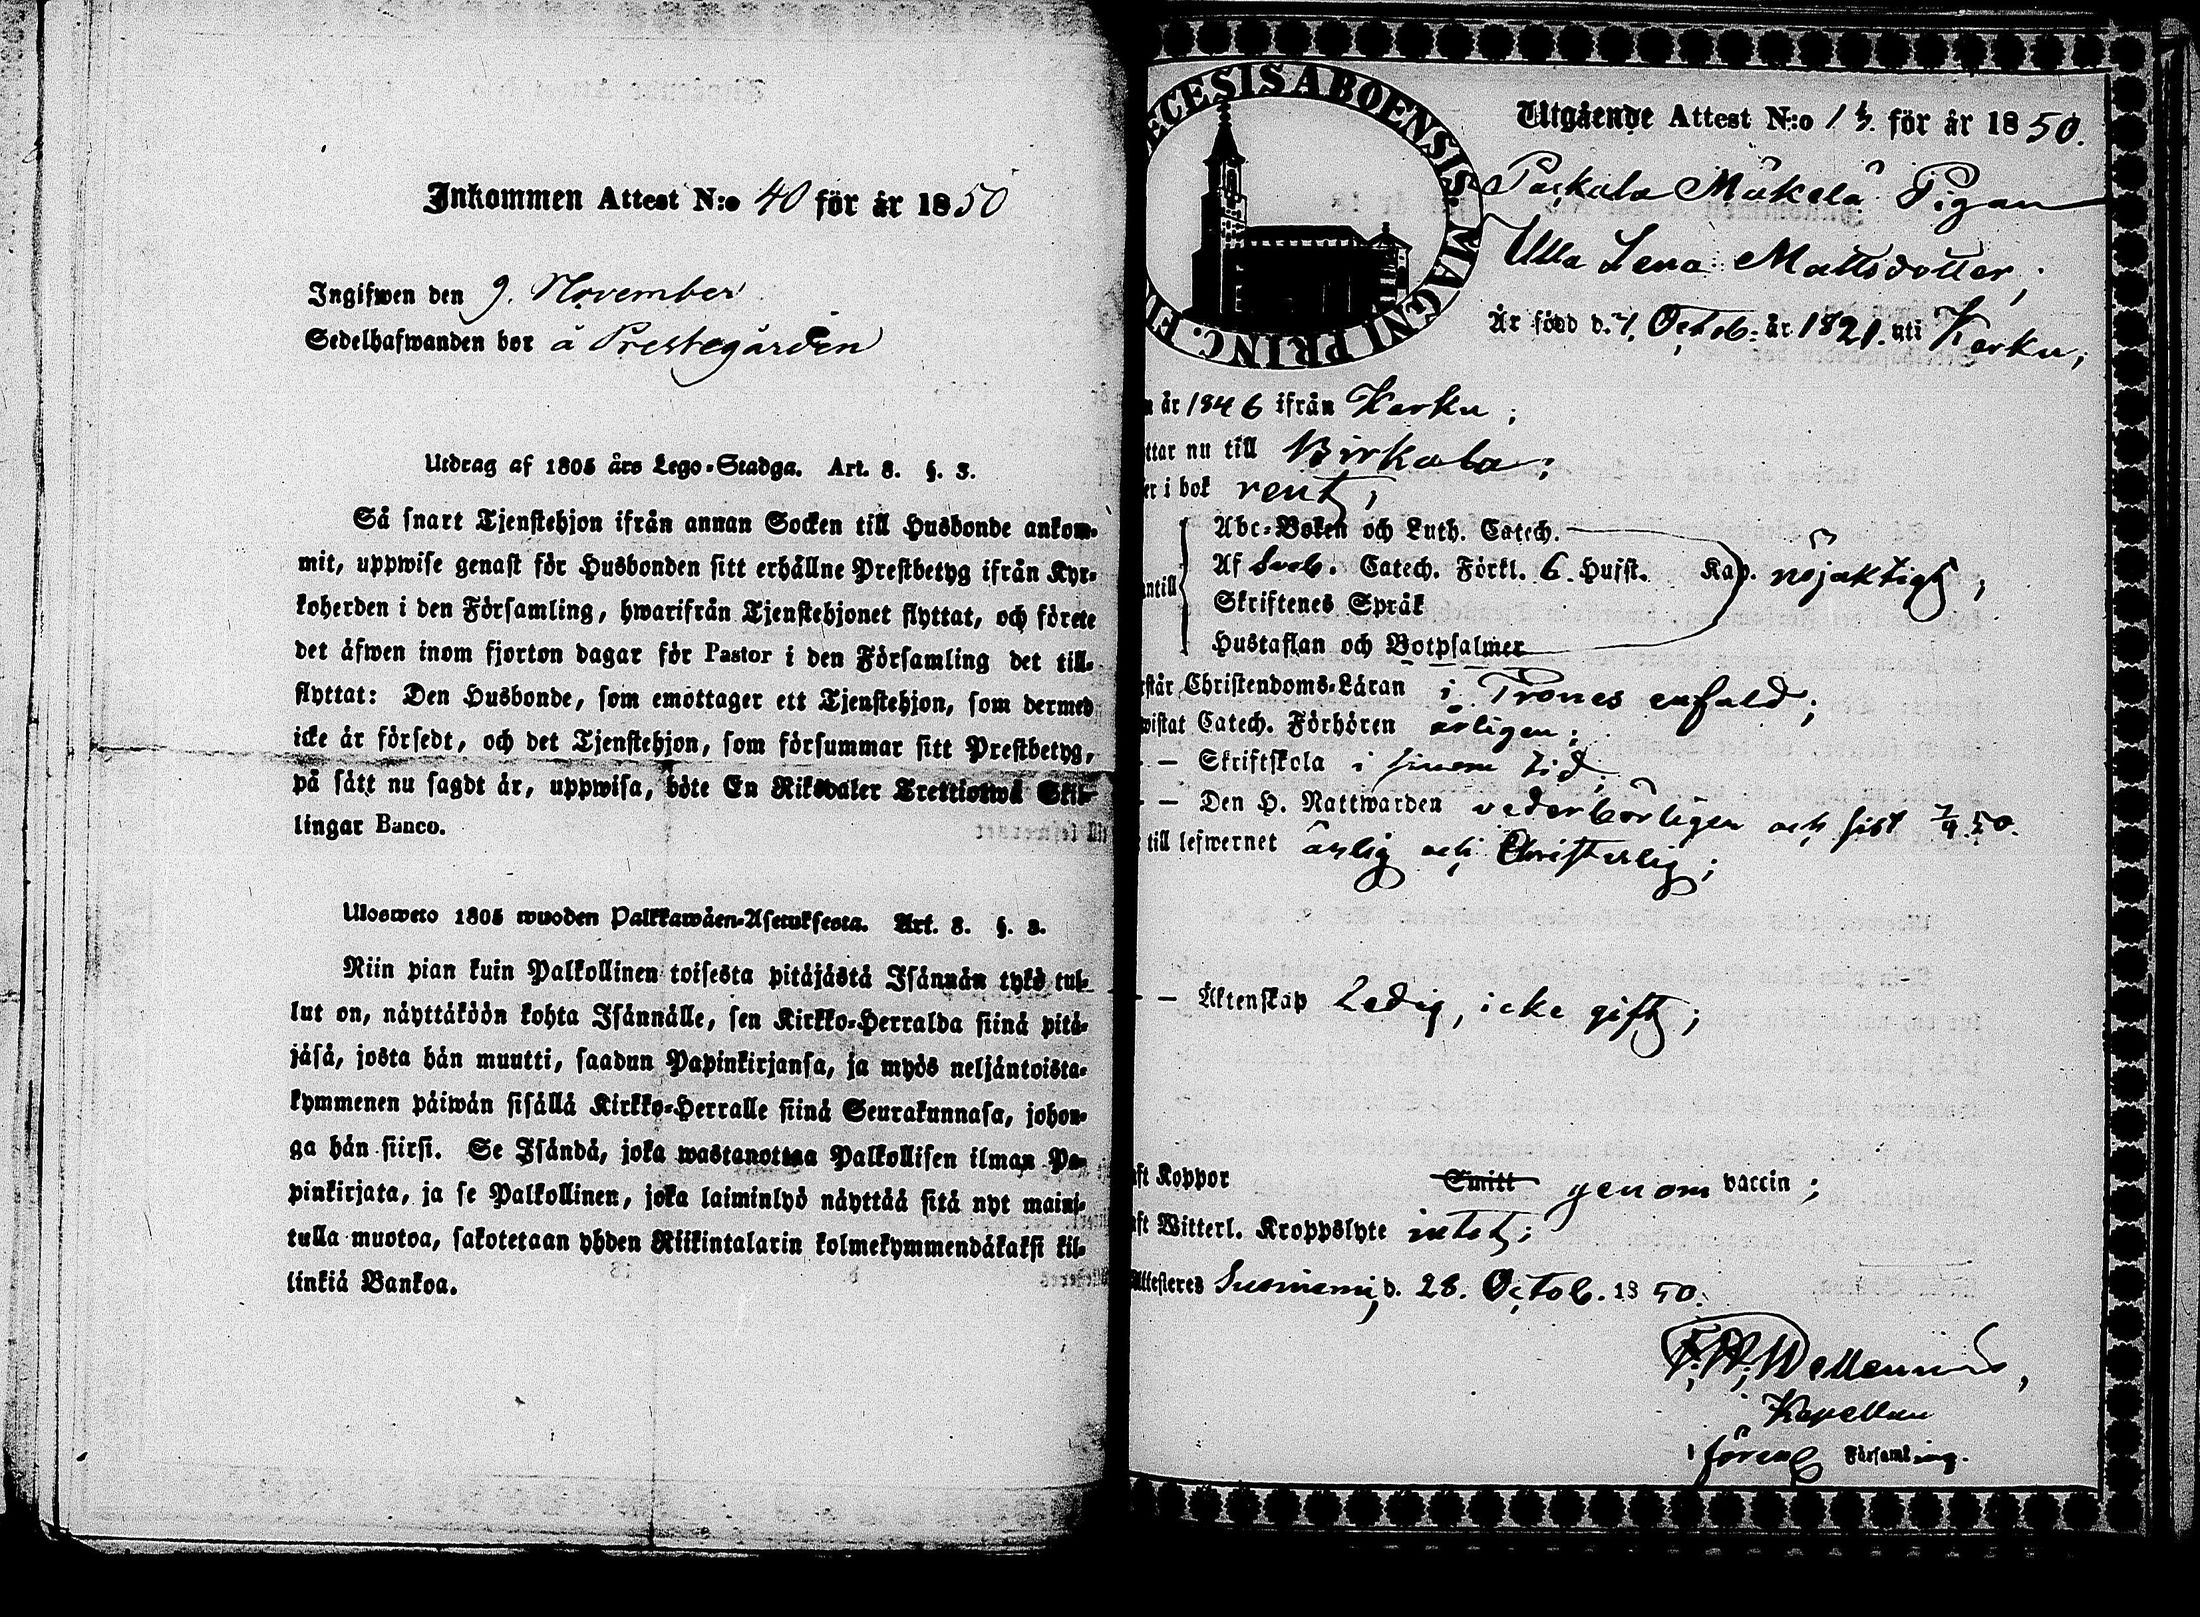 Inkommen Attest N:o 40 för år 1850
Ingifwen den 9. November
Sedelhafwanden bor å Prestegården
Utdrag af 1805 års Lego-Stadga. Art. 8. §. 3.
Så snart Tjenstehjon ifrån annan Socken till Husbonde ankom-
mit, uppwise genast för Husbonden sitt erhållne Prestbetyg ifrån Kyr-
koherden i den Församling, hwarifrån Tjenstehjonet flyttat, och förete
det äfwen inom fjorton dagar för Pastor i den Församling det till-
flyttat: Den Husbonde, som emottager ett Tjenstehjon, som dermed
icke är försedt, och det Tjenstehjon, som försummar sitt Prestbetyg,
på sätt nu sagdt är, uppwisa, böte En Riksdaler Trettiotwå Skil-
lingar Banco.
Ulosweto 1805 wuoden Palkkawäen-Asetuksesta. Art. 8. §. 3.
Niin pian kuin Palkollinen toisesta pitäjästä Isännän tykö tul-
lut on, näyttäköön kohta Isännälle, sen Kirkko-Herralda siinä pitä-
jäsä, josta hän muutti, saadun Papinkirjansa, ja myös neljäntoista-
kymmenen päiwän sisällä Kirkko-Herralle siinä Seurakunnasa, johon-
ga hän siirsi. Se Isändä, joka wastanottaa Palkollisen ilman Pa-
pinkirjata, ja se Palkollinen, joka laiminlyö näyttää sitä nyt maini-
tulla muotoa, sakotetaan yhden Riikintalarin kolmekymmendäkaksi kil-
linkiä Bankoa.
ECESIS ABOENSIS. MAGNI PRINC. FI
Utgående Attest N:o 13. för år 1850.
Paskala Mäkelä Pigan
Ulla Lena Mattsdotter,
Är född d. 4. Octob. år 1821. uti Karku;
n år 1846 ifrån Karku;
ttar nu till Birkala;
er i bok rent;
Abc-Boken och Luth. Catech.
Af Sveb. Catech. Förkl. 6. Hufst. Kap. nöjaktigt;
antill
Skriftenes Språk
Hustaflan och Botpsalmer
rstår Christendoms-Läran i Trones enfald;
wistat Catech. Förhören årligen;
– – Skriftskola i sinom tid;
– – Den H. Nattwarden vederbörligen och sist 7/4 50.
till lefwernet ärlig och Christelig;
– – Äktenskap Ledig, icke gift;
ft Koppor Smitt genom vaccin;
ft Witterl. Kroppslyte intet;
Attesteres Suoniemi, d. 28. Octob. 1850.
Kapellan
i förena Församling.